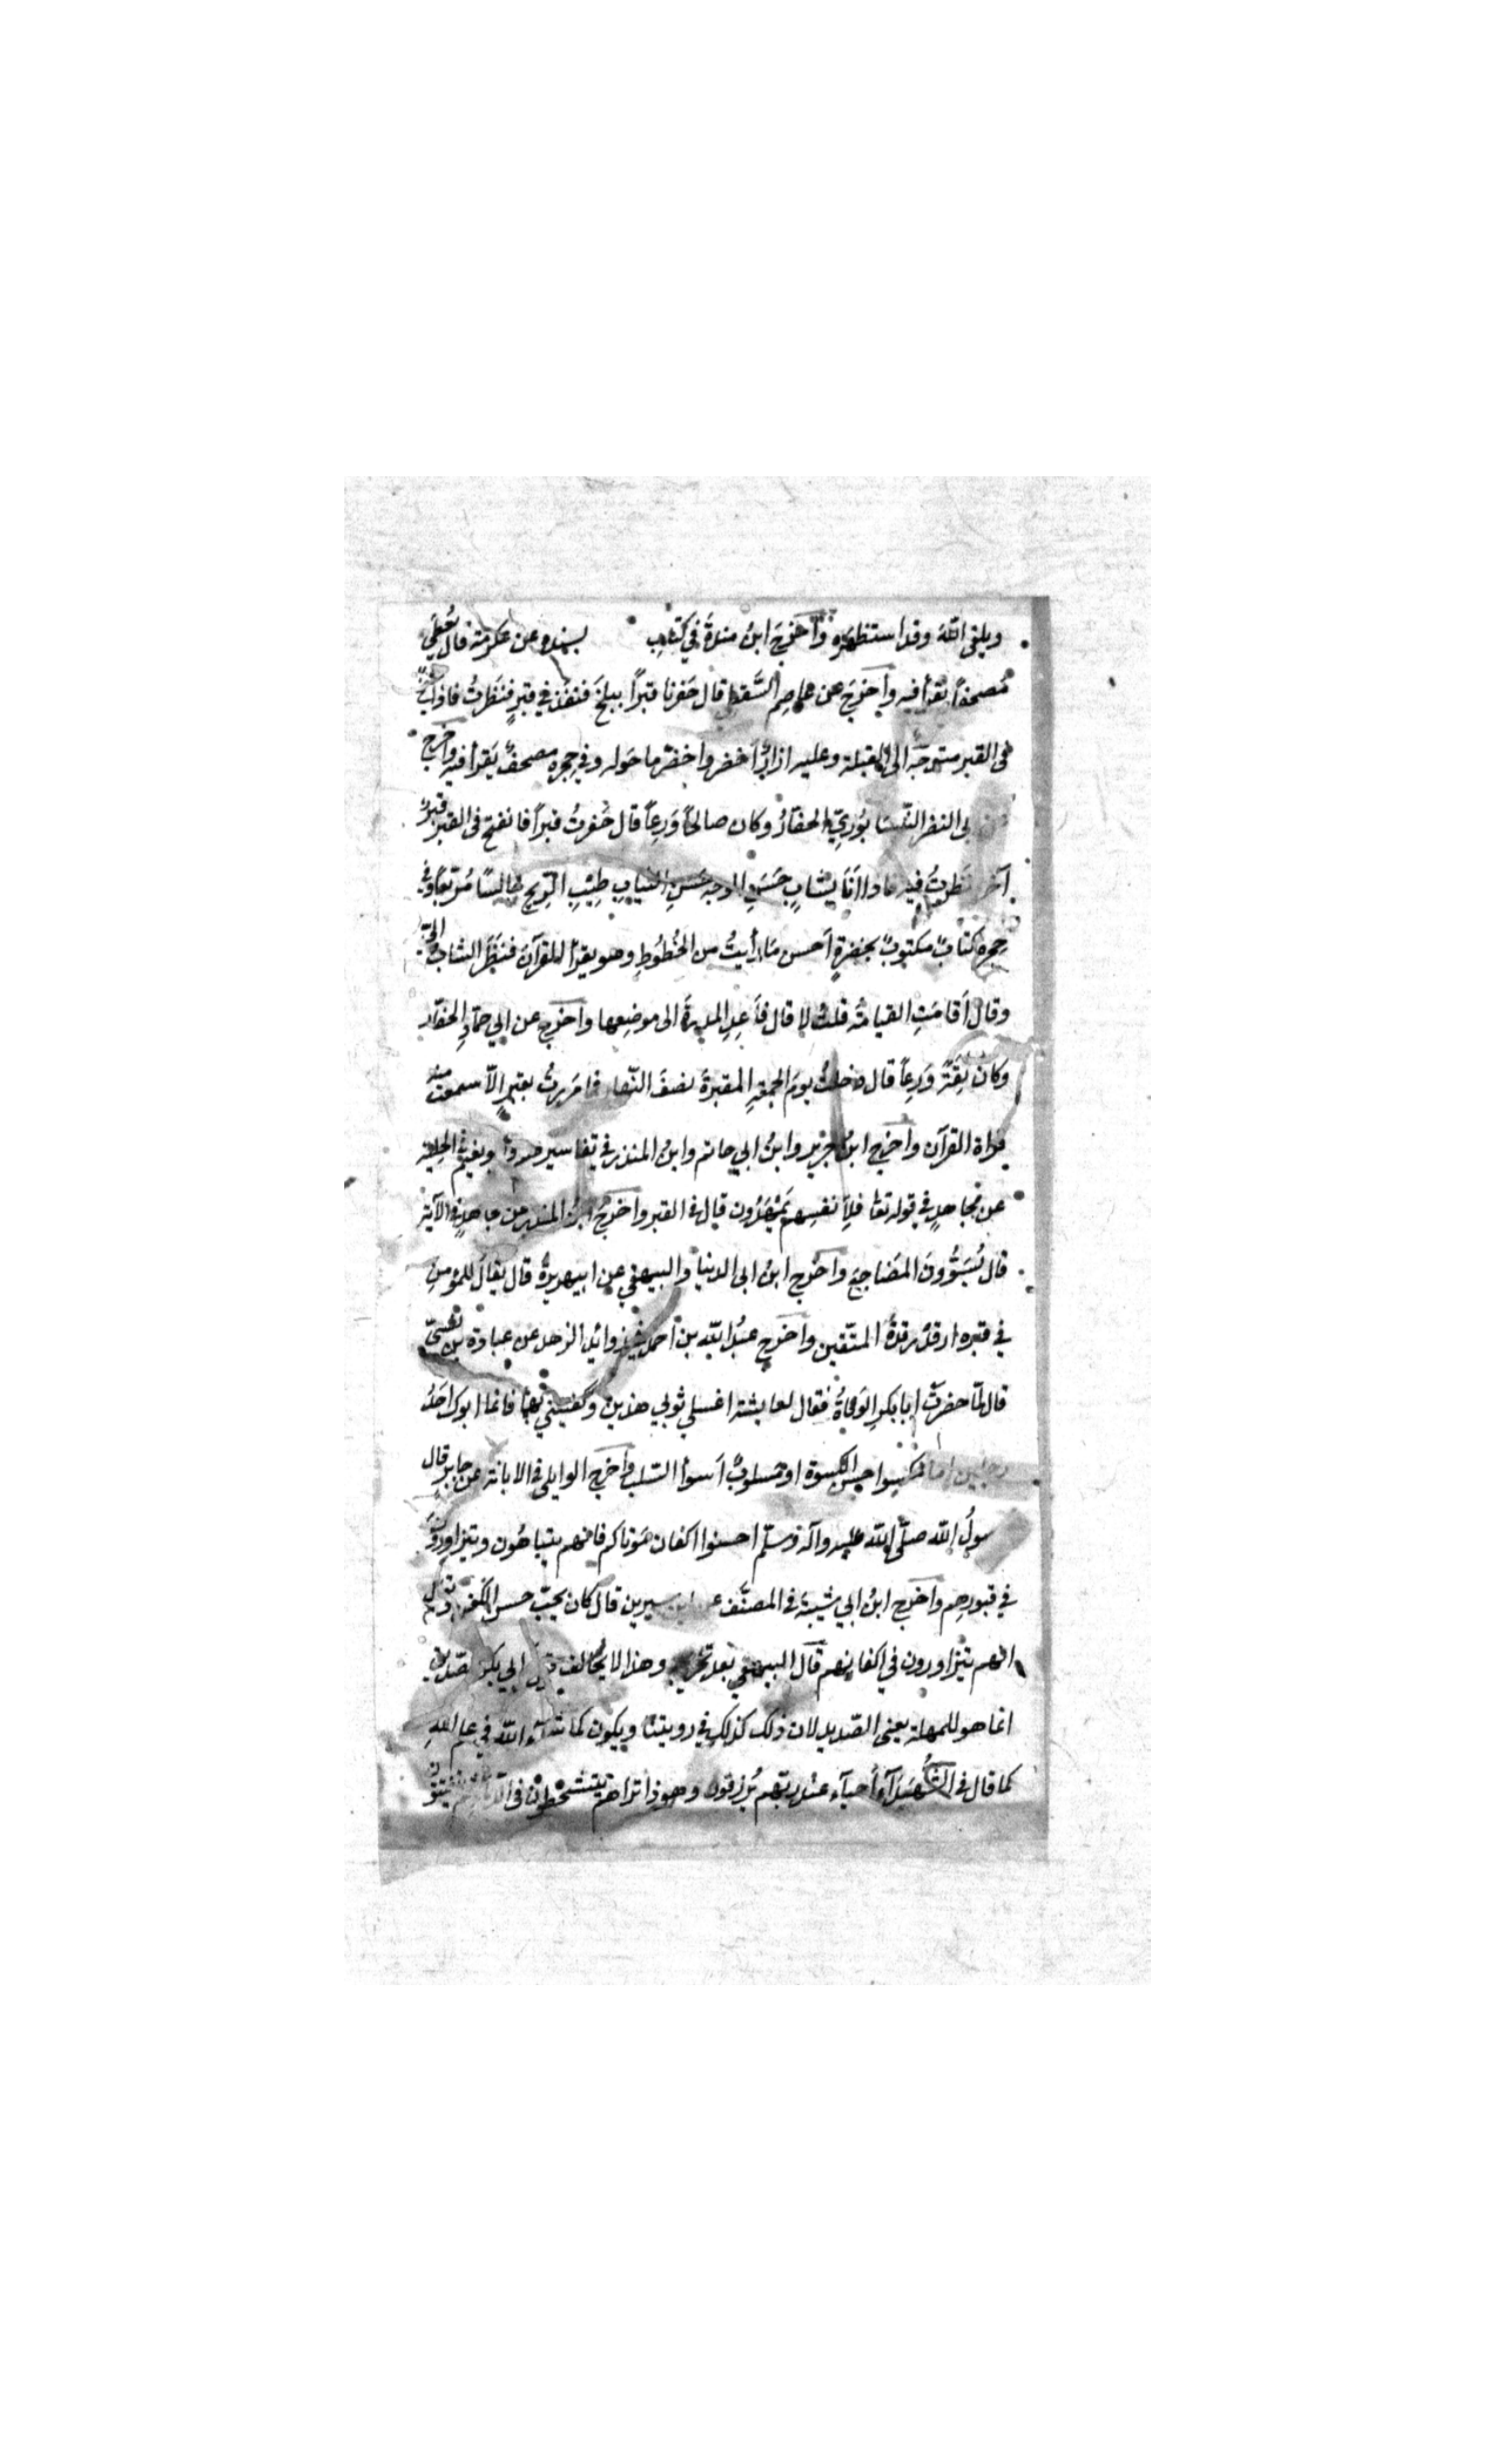 ويلقى الله وقد استظهره وأخرج ابن مندة في كتاب بسنده عن عكرمة قال يعطى
مصحفاً يقرأ فيه وأخرج عن عاصم السقطي قال حَفرنا قبراً ببلخ فنفذ في قبرٍ فنظرتُ فاذا شيخ
في القبر متوجّه الى القبلة وعليه ازارٌ أخضر واخضرّ ما حَوله وفي حجره مصحفٌ يَقرأ فيه واخرج
ابى النضر النّيسَابُوريّ الحفّارُ وكان صالحاً وَرِعاً قال حَفرتُ قبراً فانفتح فى القبر قبرٌ
آخر فنظرتُ فيه فاذا أنَا بِشابٍ حَسَنِ الوجه حَسَنِ الثيابِ طيّبِ الرّيح جالسًا مُربّعاً وفي
حِجره كتابٌ مكتوبٌ بخضرةٍ أحسن مَا رأيتُ من الخُطُوطِ وهو يقرأ القرآنَ فنَظرَ الشابّ اليّ
وقال أقامَتِ القيامةُ قلتُ لا قال فأَعِدِ المدرةَ الى موضِعها واخرج عن ابي حمّادٍ الحفّار
وكان ثِقَةً وَرِعاً قال دخلتُ يومَ الجمعةِ المقبرةَ نصفَ النّهار فما مَررتُ بقبرٍ الاّ سمعتُ منه
قراة القرآن واخرج ابنُ جرير وابنُ ابي حاتم وابنُ المنذر في تفاسيرهم وأبو نعيم في الحلية
عن مجاهدٍ في قوله تعا فلأنفسِهم يَمْهَدُون قال في القبر واخرج ابنُ المنذر عن مجاهدٍ في الآية
قال يُسَوُّونَ المَضاجعَ واخرج ابنُ ابى الدنيا والبيهقي عن ابيهريرة قال يقال للمؤمنِ
في قبره ارقد رقدةَ المتّقين واخرج عبدُ الله بن احمد في زوائد الزهد عن عبادة بن نُسَيّ
قال لمّا حضرَتْ ابابكرٍ الوَفاةُ فقال لعايشة اغسلي ثوبي هذين وكفّنيني بهما فانما ابوك احَدُ
رجلين اما مكسوا حسن الكسوة او مسلوبٌ أسوأ السّلب واخرج الوايلي في الابانة عن جابرٍ قال
سولُ الله صلّى الله عليه وآله وسلّم احسنوا اكفان مَوتاكم فانهم يتباهُون ويتزاورُونَ
في قبورهم واخرج ابنُ ابي شيبة في المصنّف عن ابن سيرين قال كان يحبّ حسن الكفن ويقال
انهم يتزاورون في اكفانهم قال البيهقي بعد تخريجه وهذا لا يخالف قول ابي بكر الصّديق
انما هو للمهلة يعنى الصّديد لان ذلك كذلك في رويتنا ويكون كما شآء اللهُ في علم الله
كما قال في الشُّهَدَآءِ أحيآء عند ربّهم يُرزقون وهو ذا تراهم يتشحّطون في الدماء ثم يفتتون